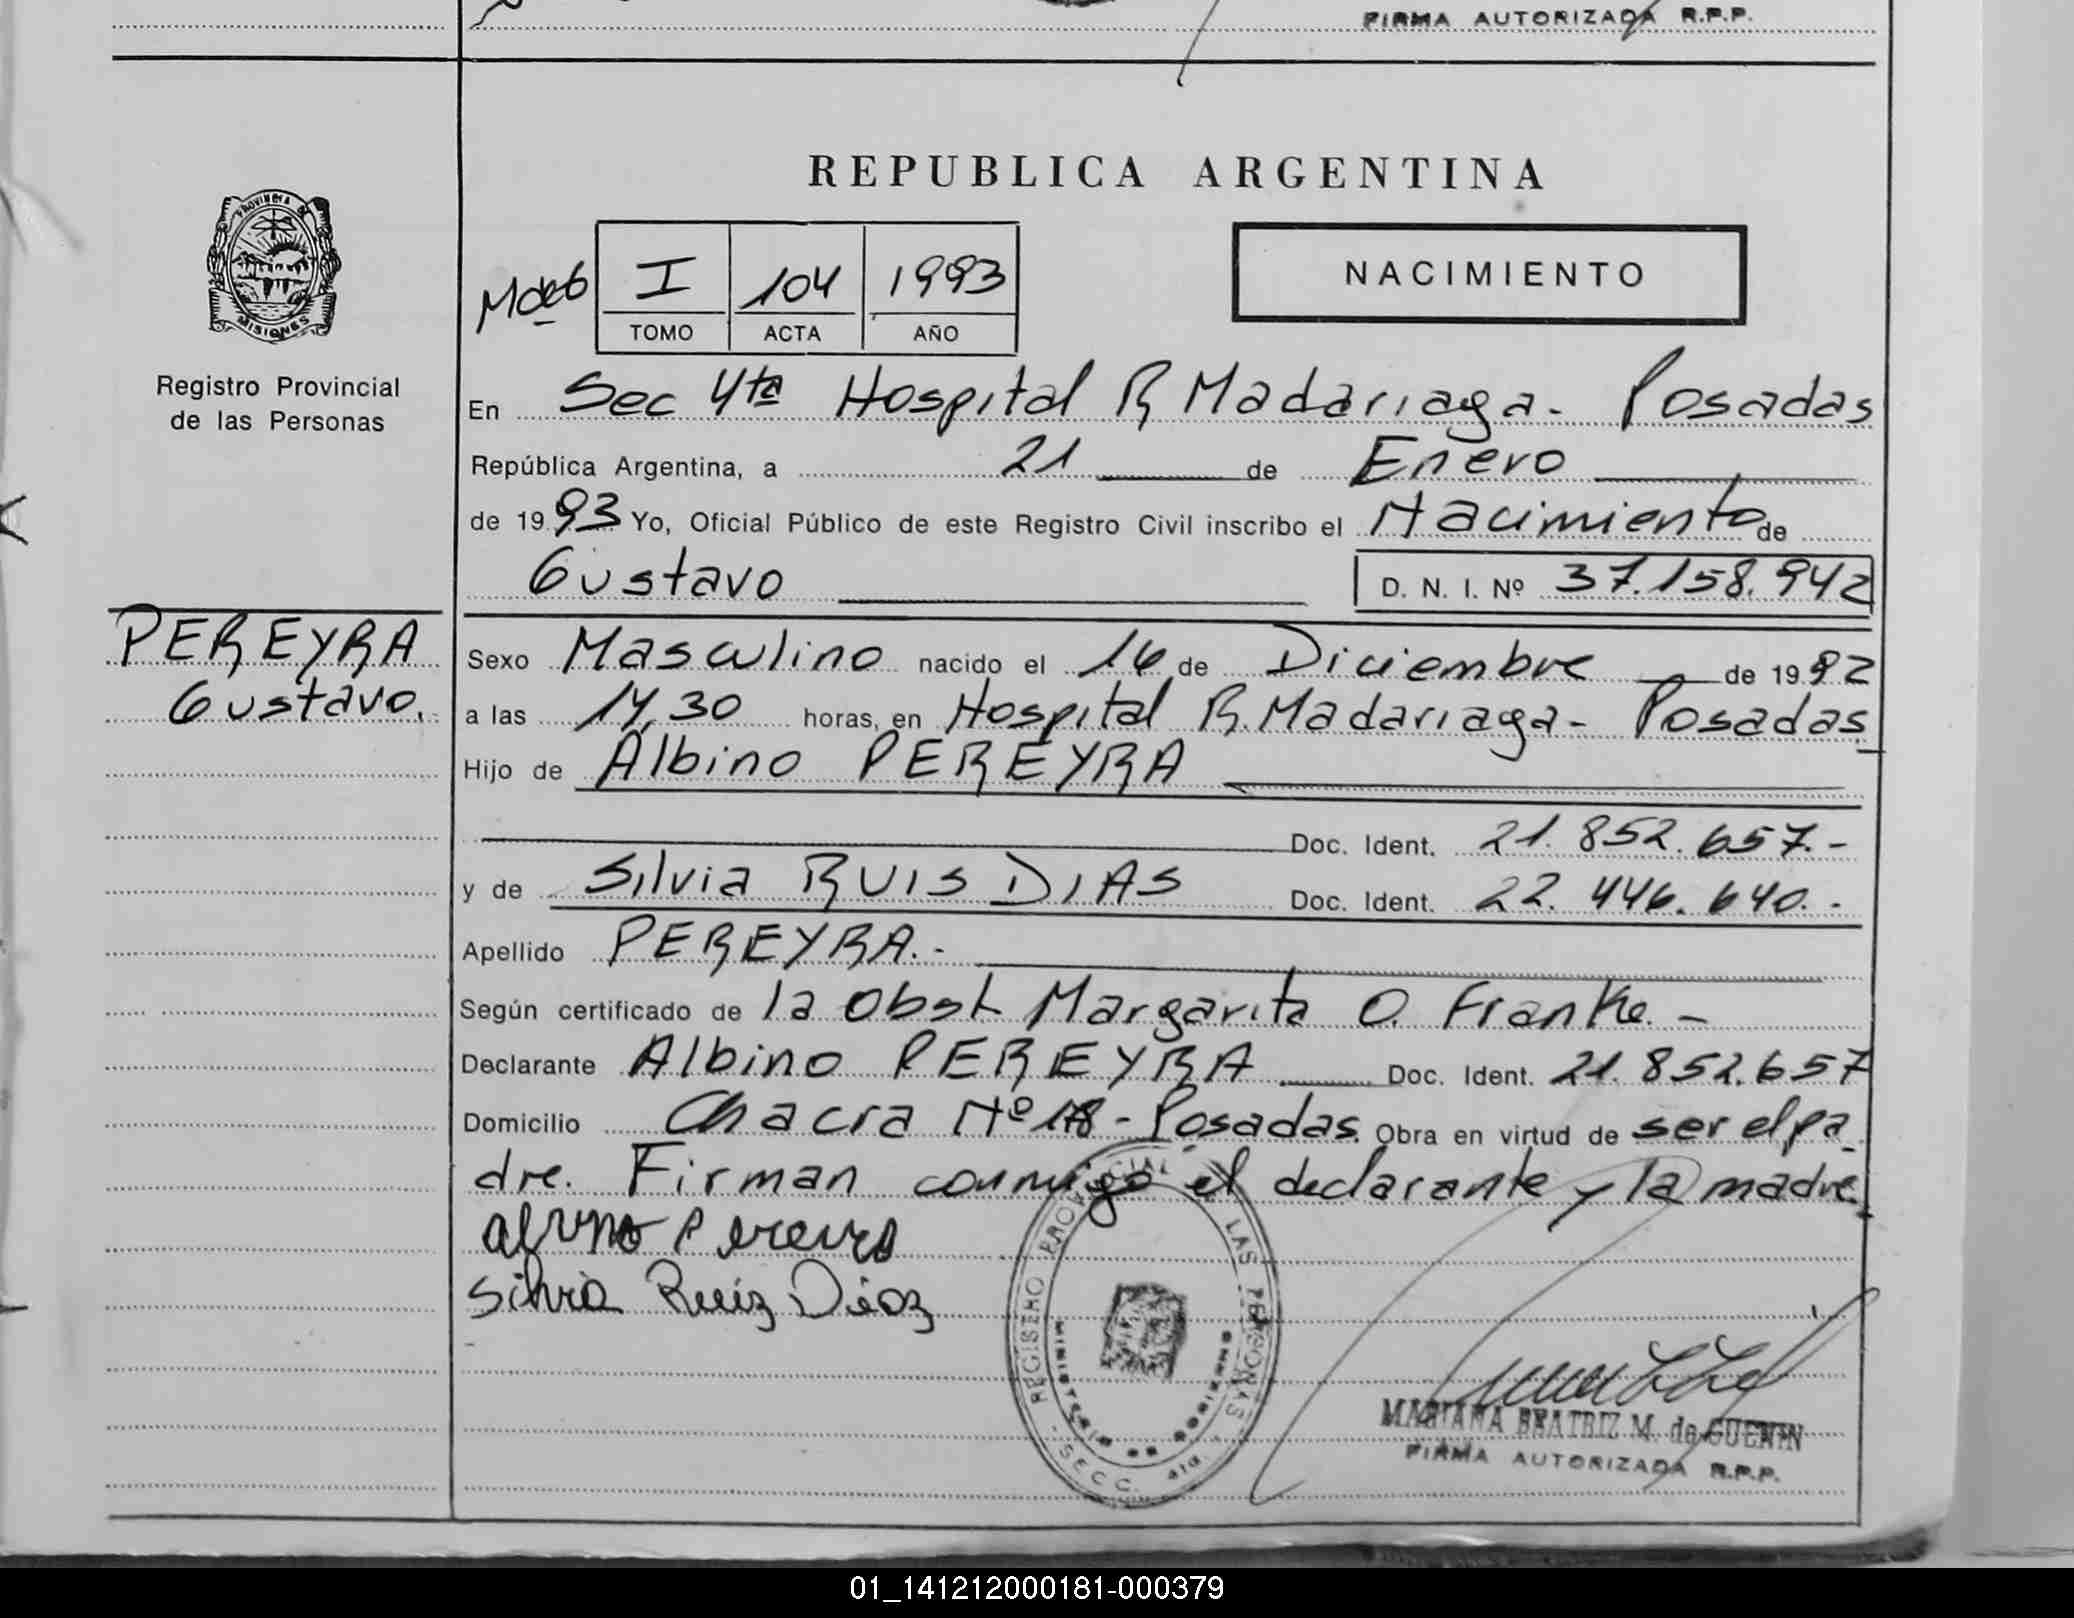 FIRMA AUTORIZADA R.P.P.
REPUBLICA ARGENTINA
PROVINCIA DE
MISIONES
Registro Provincial
de las Personas
I 104 1993
TOMO ACTA AÑO
NACIMIENTO
En Sec 4ta Hospital R Madariaga - Posadas
República Argentina, a 21 de Enero
de 1993 Yo, Oficial Público de este Registro Civil inscribo el Nacimiento de
Gustavo D. N. I. Nº 37.158.942
PEREYRA
Gustavo.
Sexo Masculino nacido el 16 de Diciembre de 1992
a las 14,30 horas, en Hospital R. Madariaga - Posadas
Hijo de Albino PEREYRA
Doc. Ident. 21.852.657.-
y de Silvia RUIS DIAS Doc. Ident. 22.446.640.-
Apellido PEREYRA.-
Según certificado de la Obst. Margarita O. Franke. -
Declarante Albino PEREYRA Doc. Ident. 21.852.657
Domicilio Chacra Nº 18 - Posadas. Obra en virtud de ser el pa
dre. Firman conmigo el declarante y la madre.
Pereyra
Silvia Ruiz Diaz
REGISTRO PROVINCIAL DE LAS PERSONAS
MINISTERIO DE GOBIERNO
- SECC. 4ta. -
MARIANA BEATRIZ M. de GUERIN
FIRMA AUTORIZADA R.P.P.
01_141212000181-000379